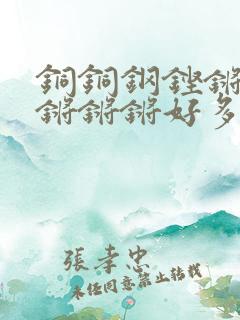 銅銅鋼鏗鏘
鏘鏘鏘好多
張孝忠
未经同意禁止转载